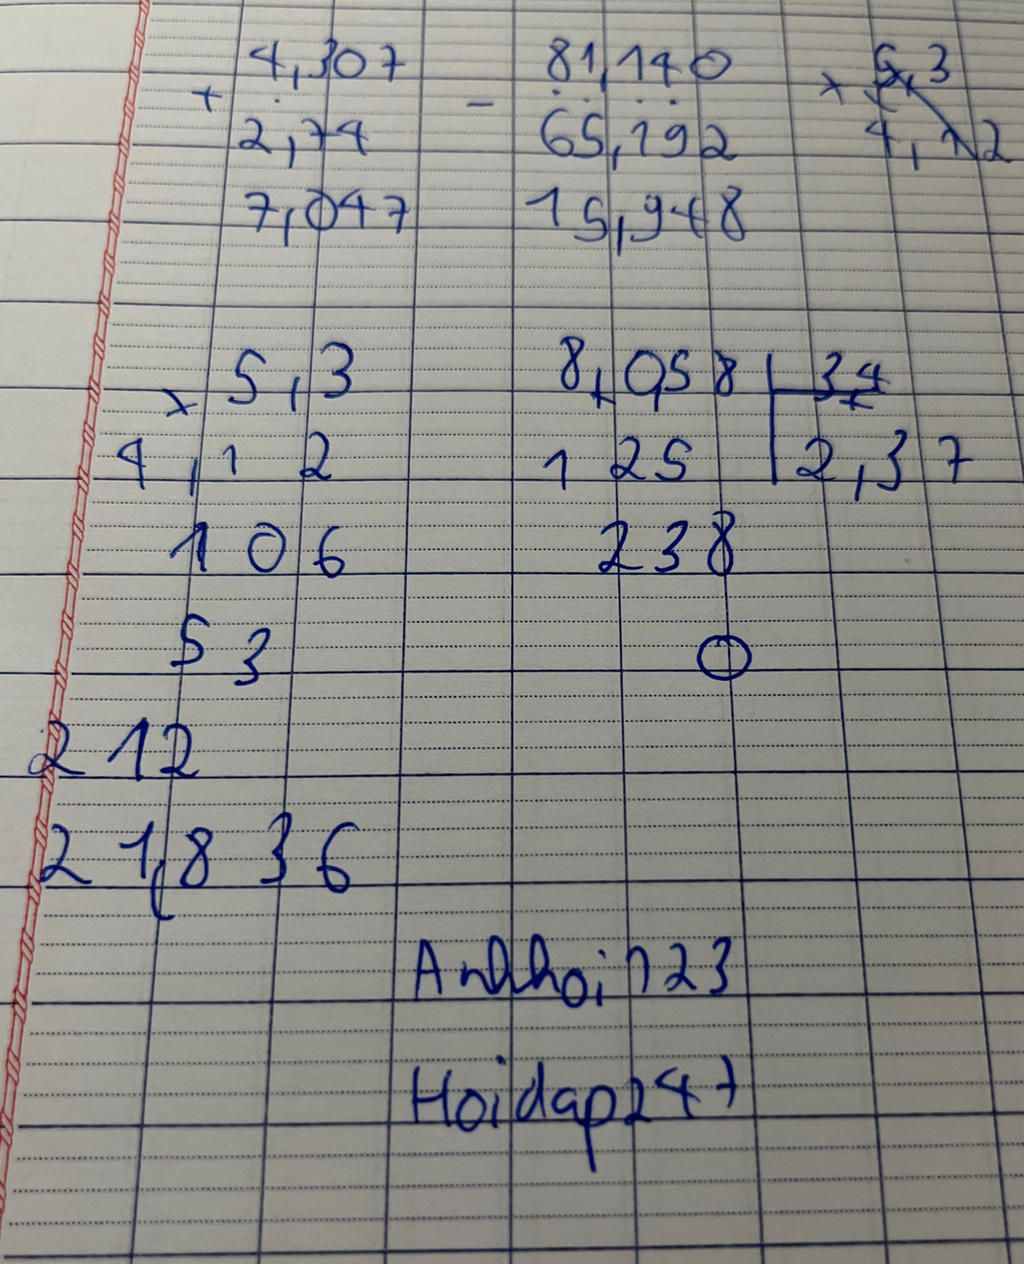 4,307 - 81,140 × 5,3
+
2,74 65,192 4,12
7,047 15,948
× 5,3 8,058 34
4,12 125 2,37
106 238
53 0
212
21,836
Anhhoi123
Hoidap247